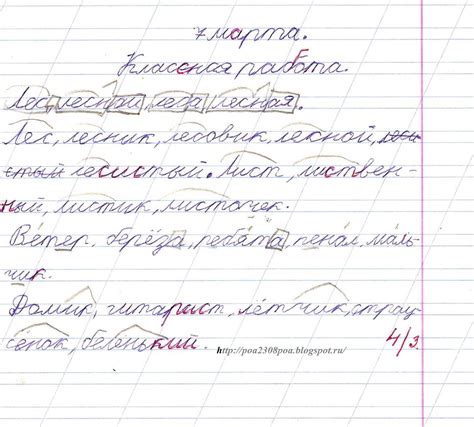 7 марта.
Классная работа.
Лес, лесной, леса, лесная.
Лес, лесник, лесовик, лесной, леси
стый лесистый. Лист, листвен-
ный, листик, листочек.
Ветер, берёза, ребята, пенал, маль-
чик.
Домик, гитарист, лётчик, страу-
сёнок, беленький. 4/3.
http://poa2308poa.blogspot.ru/